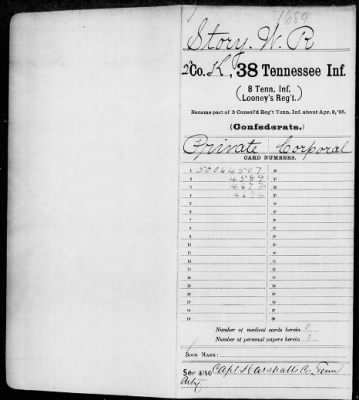 1689
Story, W. R
2d Co. K, 38 Tennessee Inf.
(8 Tenn. Inf.
Looney's Reg't.)
Became part of 3 Consol'd Reg't Tenn. Inf. about Apr. 9, '65.
(Confederate.)
Private Corporal
CARD NUMBERS.
1 50064507 20
2 4589 21
3 22
4 23
5 24
6 25
7 26
8 27
9 28
10 29
11 30
12 31
13 32
14 33
15 34
16 35
17 36
18 37
19 38
Number of medical cards herein 0
Number of personal papers herein 0
BOOK MARK:
See also Capt. Marshall's Co, Tenn
Arty